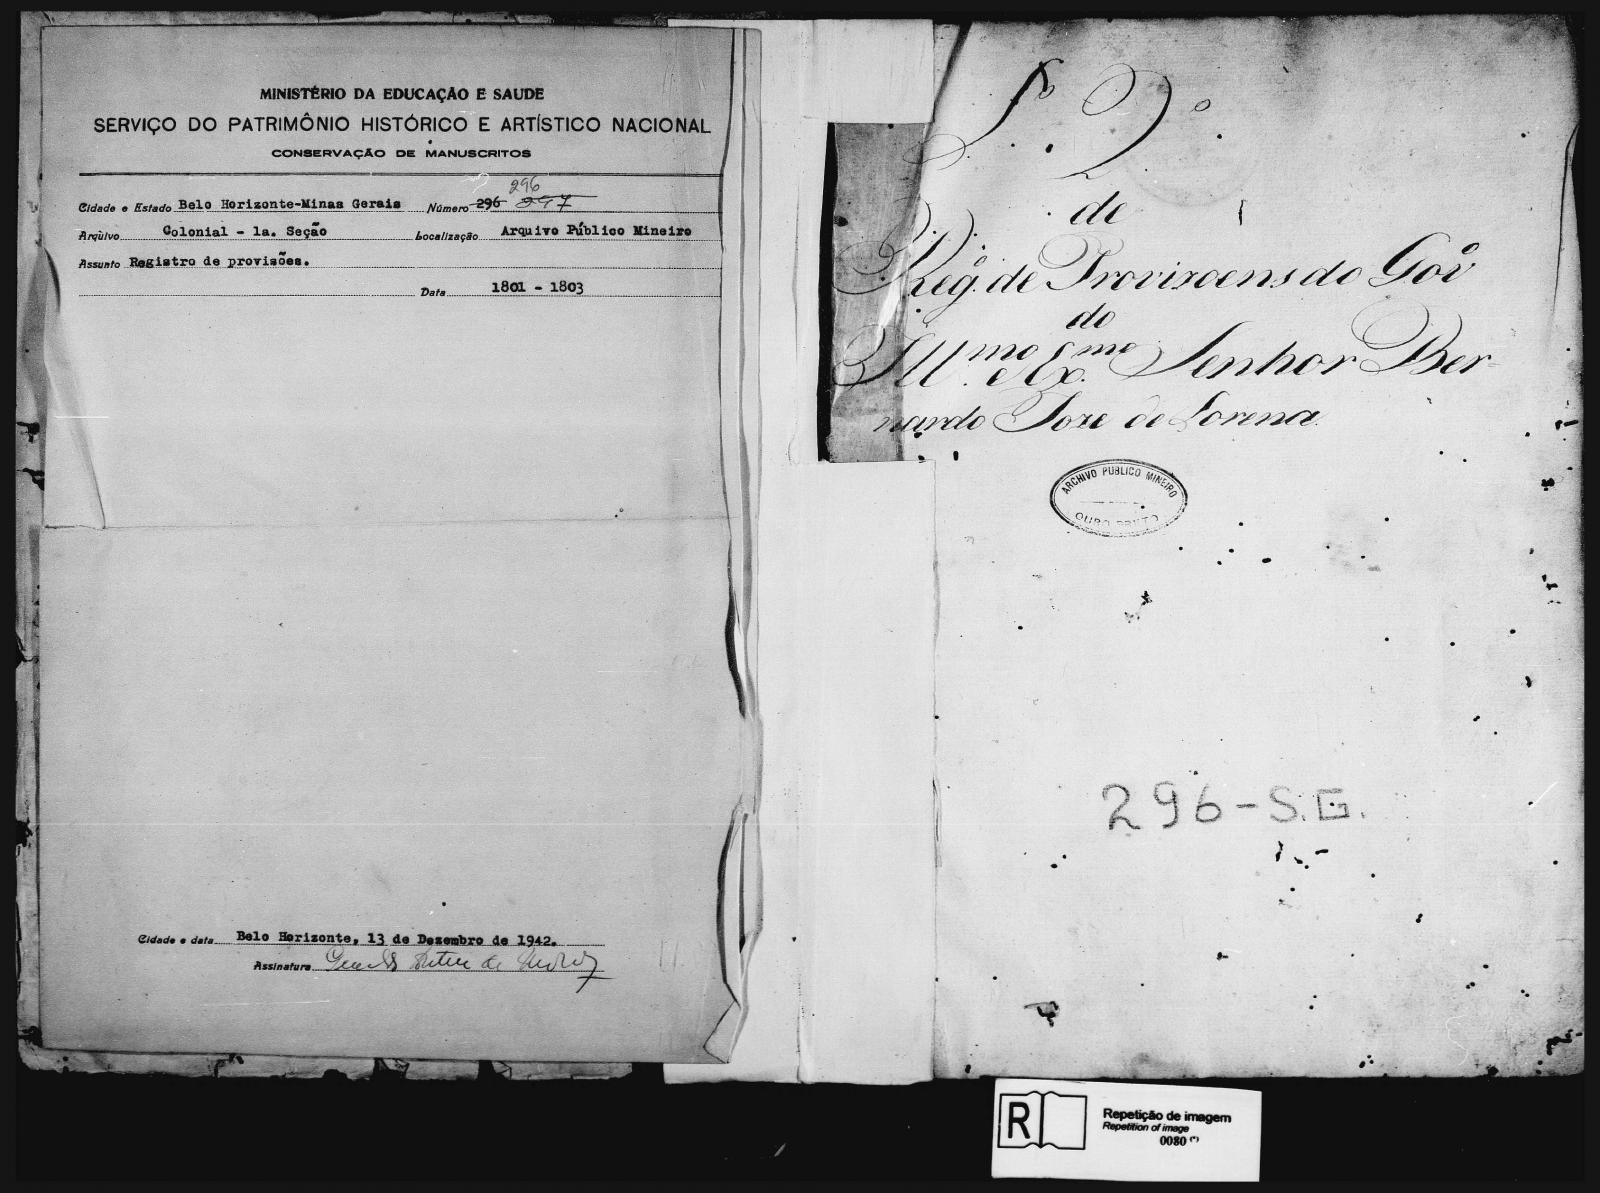 MINISTÉRIO DA EDUCAÇÃO E SAUDE
SERVIÇO DO PATRIMÔNIO HISTÓRICO E ARTÍSTICO NACIONAL
CONSERVAÇÃO DE MANUSCRITOS
296
Cidade e Estado Belo Horizonte-Minas Gerais Número 296 297
Arquivo Colonial - 1a. Seção Localização Arquivo Público Mineiro
Assunto Registro de provisões.
Data 1801 - 1803
Cidade e data Belo Horizonte, 13 de Dezembro de 1942.
Assinatura
L.º 2.º
de
Reg. de Provizoens do Gov.º
do
Ill.mo Ex.mo Senhor Ber-
nardo Joze de Lorena
ARCHIVO PUBLICO MINEIRO
OURO PRETO
296-S.G.
R
Repetição de imagem
Repetition of image
0080 (*)